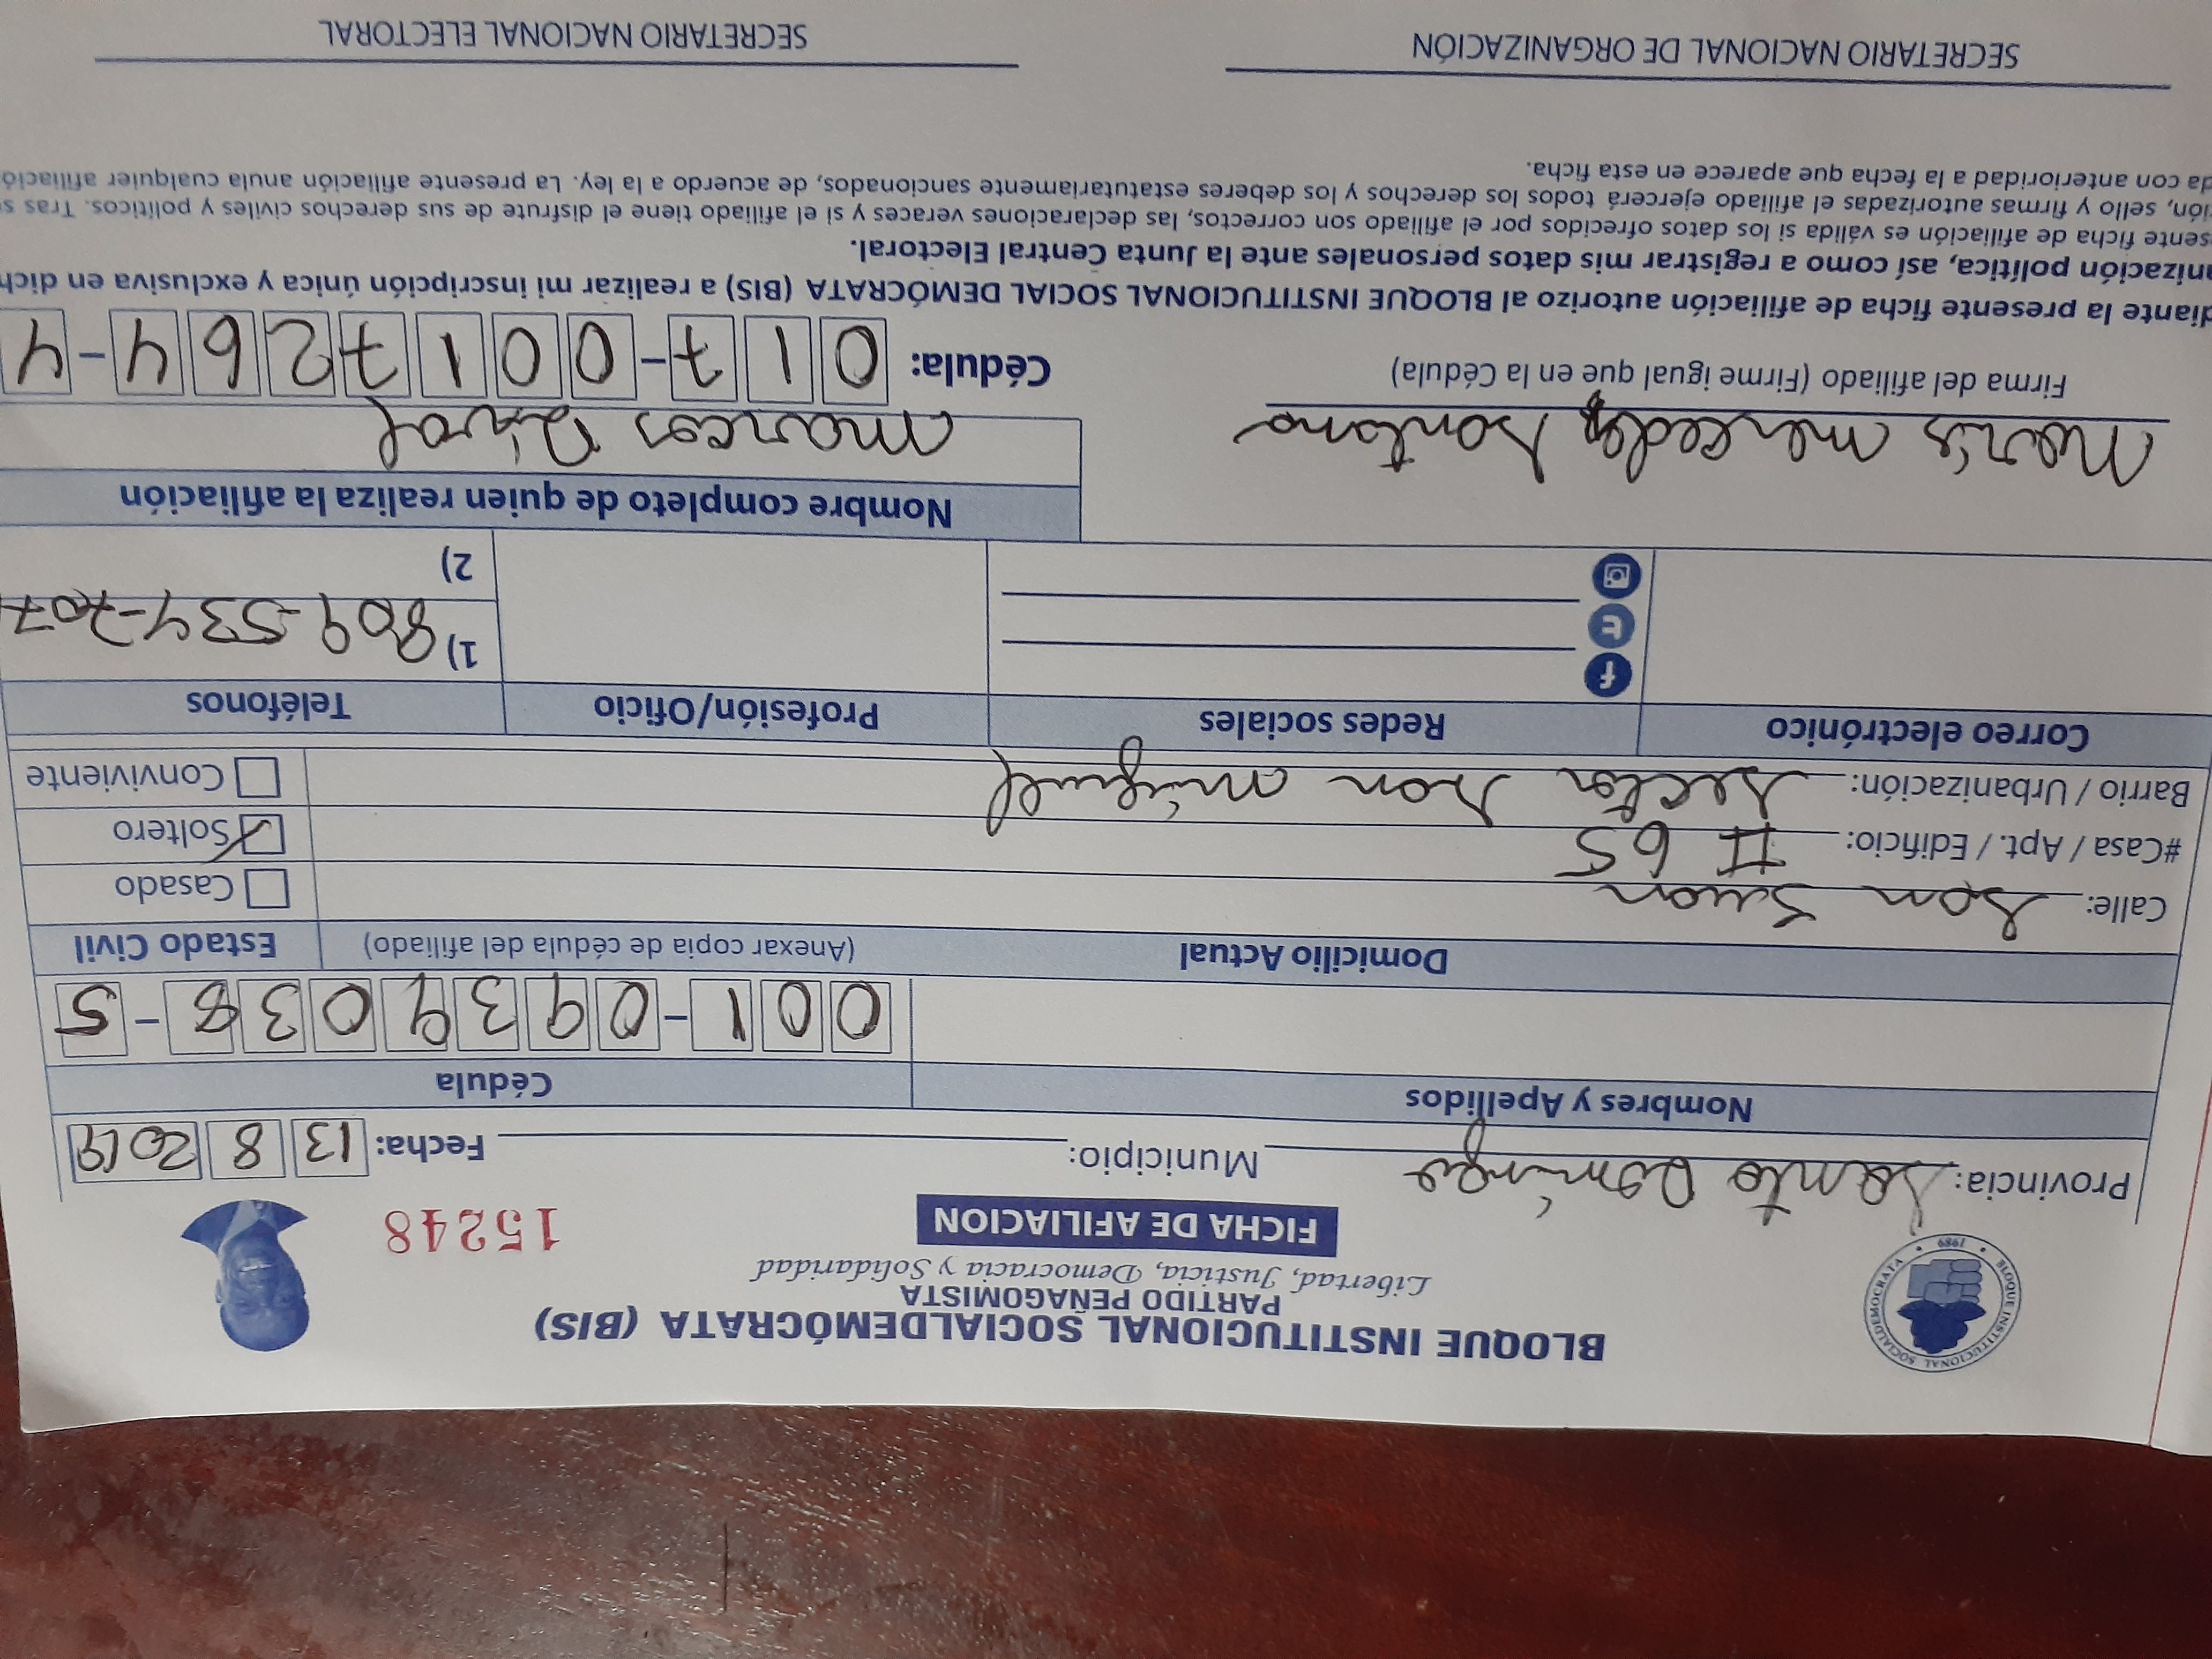 BLOQUE INSTITUCIONAL SOCIALDEMÓCRATA (BIS)
PARTIDO PEÑAGOMISTA
Libertad, Justicia, Democracia y Solidaridad
FICHA DE AFILIACION
15248
BLOQUE INSTITUCIONAL SOCIALDEMOCRATA • 1989 •
Provincia: Santo Domingo Municipio: Fecha: 13 8 2019
Nombres y Apellidos Cédula
001-0939038-5
Domicilio Actual (Anexar copia de cédula del afiliado) Estado Civil
Calle: San Juan
Casado
#Casa / Apt. / Edificio: # 65
Soltero
Barrio / Urbanización: Sector San Miguel
Conviviente
Correo electrónico Redes sociales Profesión/Oficio Teléfonos
1) 809-534-707
2)
Nombre completo de quien realiza la afiliación
María mercedes Santana
marcos
Firma del afiliado (Firme igual que en la Cédula)
Cédula: 017-0017264-4
diante la presente ficha de afiliación autorizo al BLOQUE INSTITUCIONAL SOCIAL DEMÓCRATA (BIS) a realizar mi inscripción única y exclusiva en dich
anización política, así como a registrar mis datos personales ante la Junta Central Electoral.
sente ficha de afiliación es válida si los datos ofrecidos por el afiliado son correctos, las declaraciones veraces y si el afiliado tiene el disfrute de sus derechos civiles y políticos. Tras s
ión, sello y firmas autorizadas el afiliado ejercerá todos los derechos y los deberes estatutariamente sancionados, de acuerdo a la ley. La presente afiliación anula cualquier afiliació
da con anterioridad a la fecha que aparece en esta ficha.
SECRETARIO NACIONAL DE ORGANIZACIÓN
SECRETARIO NACIONAL ELECTORAL